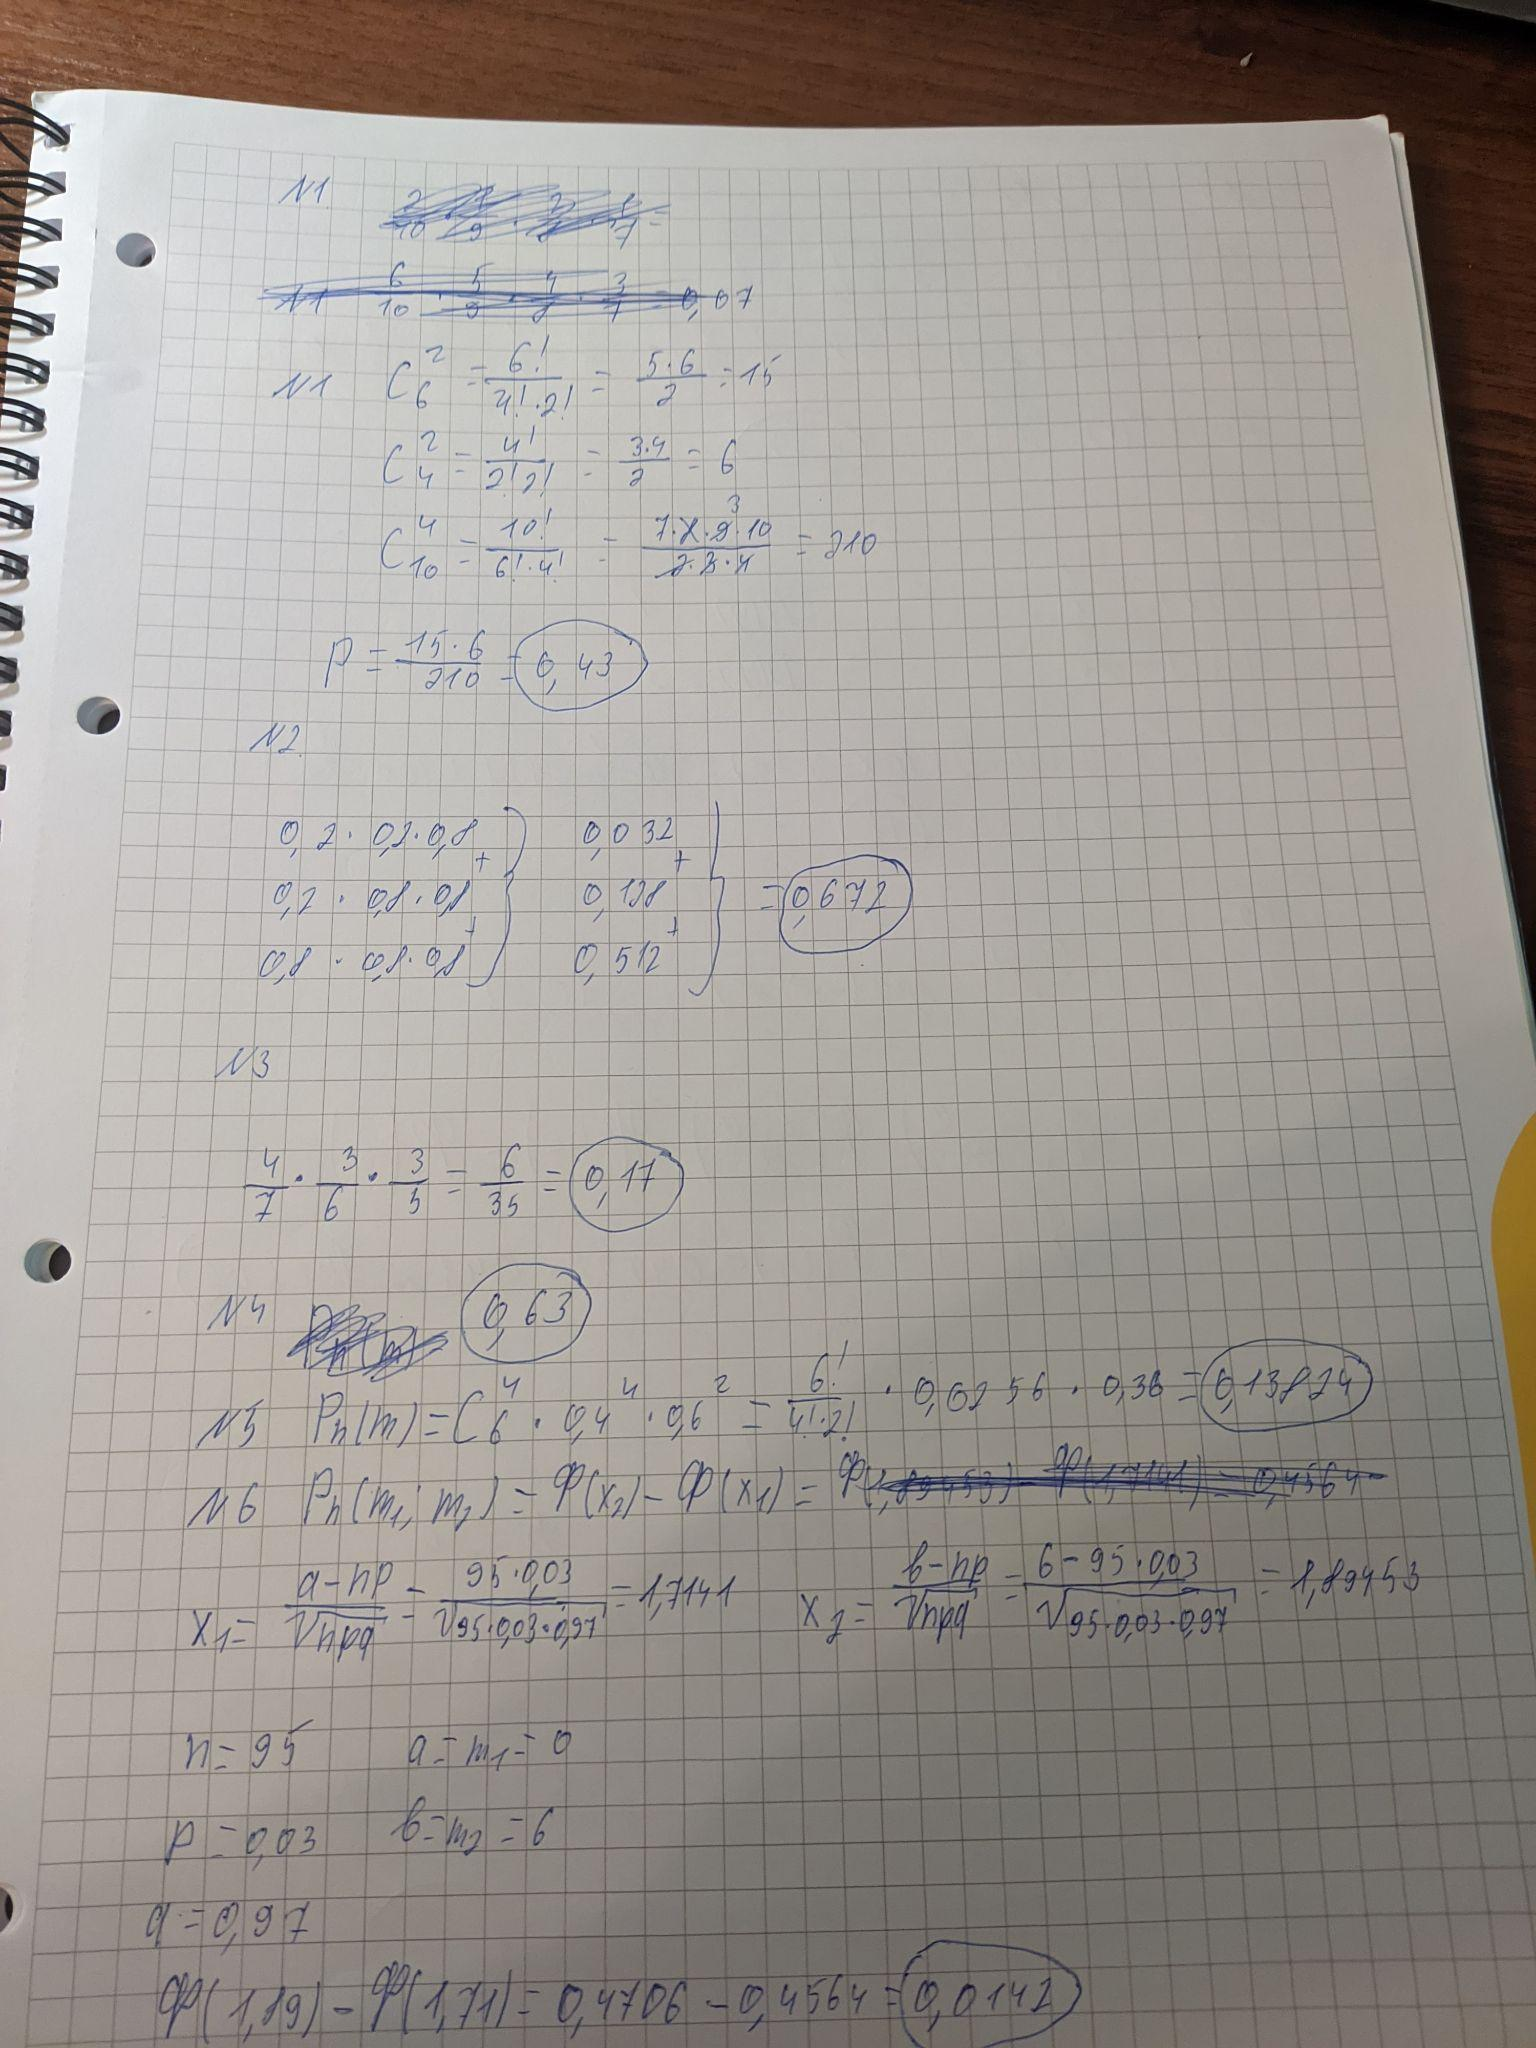 N1
N1 6/10 · 5/9 · 4/8 · 3/7 = 0,07
N1 C₆² = 6!/(4!·2!) = 5·6/2 = 15
C₄² = 4!/(2!2!) = 3·4/2 = 6
C₁₀⁴ = 10!/(6!·4!) = 7·8·9³·10/(2·3·4) = 210
P = 15·6/210 = 0,43
N2
0,2 · 0,2 · 0,8 + 0,032 +
0,2 · 0,8 · 0,8 + 0,128 + = 0,672
0,8 · 0,8 · 0,8 0,512
N3
4/7 · 3/6 · 3/5 = 6/35 = 0,17
N4 0,63
N5 Pₙ(m) = C₆⁴ · 0,4⁴ · 0,6² = 6!/(4!·2!) · 0,0256 · 0,36 = 0,13824
N6 Pₙ(m₁; m₂) = Ф(x₂) – Ф(x₁) = Ф(1,89453) – Ф(1,7141) = 0,4564
x₁ = (a–np)/√npq = 95·0,03/√95·0,03·0,97 = 1,7141 x₂ = (b–np)/√npq = (6–95·0,03)/√95·0,03·0,97 = 1,89453
n = 95 a = m₁ = 0
p = 0,03 b = m₂ = 6
q = 0,97
Ф(1,89) – Ф(1,71) = 0,4706 – 0,4564 = 0,0142